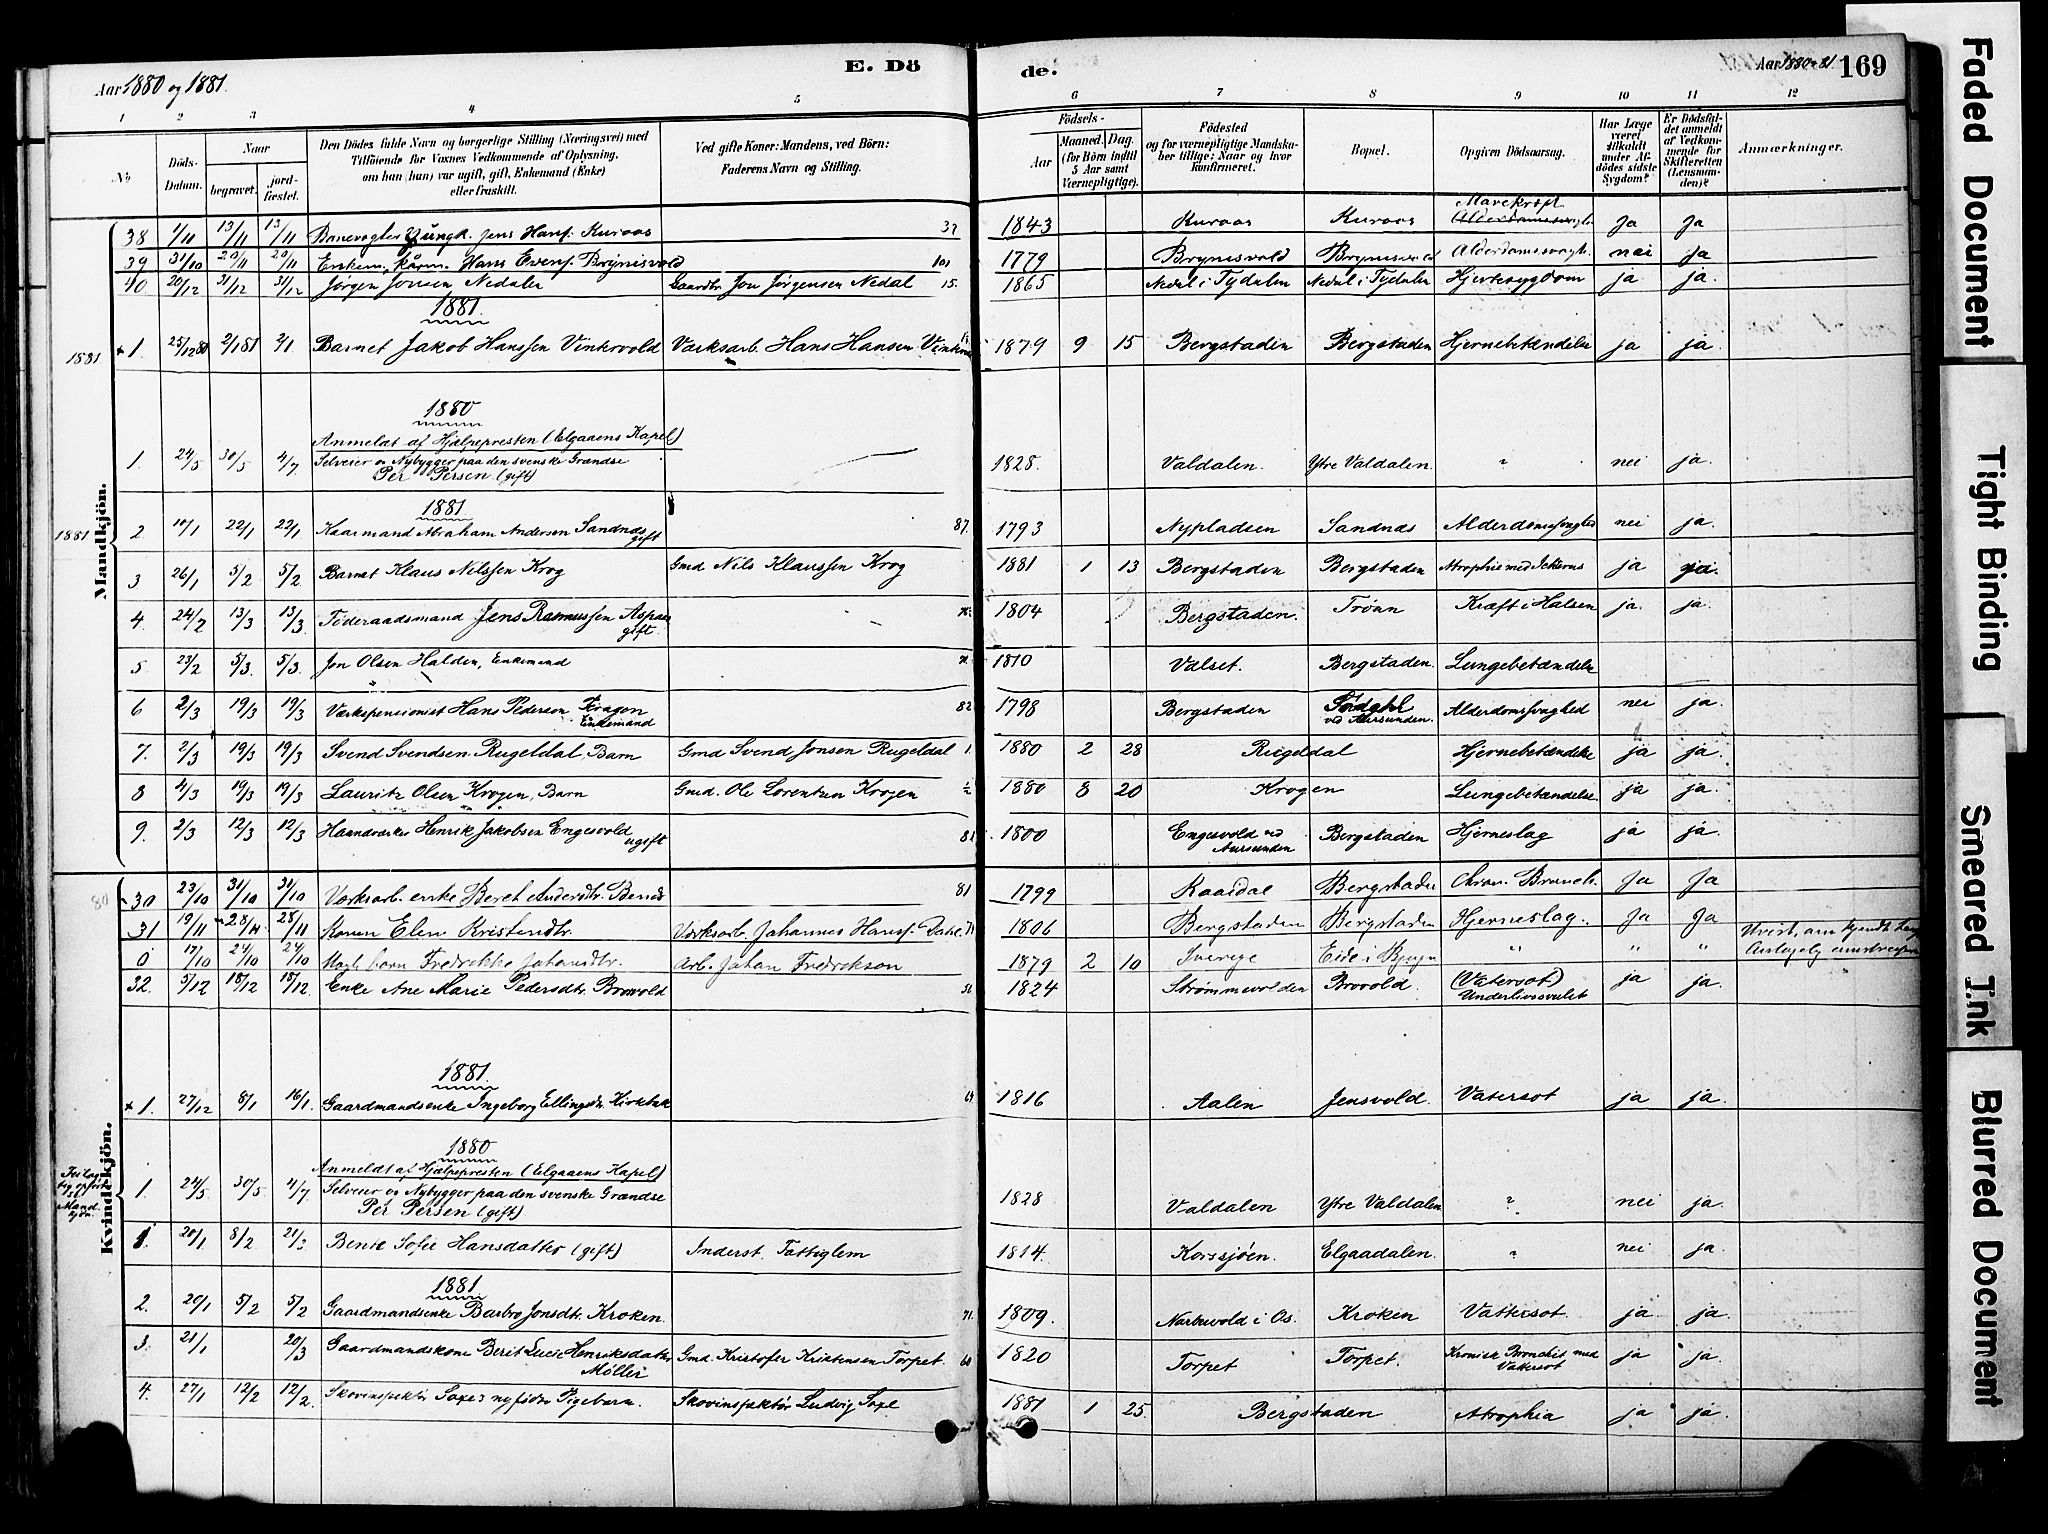 Aar 1880 og 1881.
E. Dö
de.
Aar 1880-81
169
1 2 3 4 5 6 7 8 9 10 11 12
No
Döds-Datum.
Naar
begravet.
jordfæstet.
Den Dödes fulde Navn og borgerlige Stilling (Næringsvei) med
Tilföiende for Voxnes Vedkommende af Oplysning,
om han (hun) var ugift, gift, Enkemand (Enke)
eller fraskilt.
Ved gifte Koner: Mandens, ved Börn:
Faderens Navn og Stilling.
Födsels-
Aar
Maaned. (for Börn indtil 5 Aar samt Værnepligtige).
Dag.
Födested
og for værnepligtige Mandskaber tillige: Naar og hvor konfirmeret.
Bopæl.
Opgiven Dödsaarsag.
Har Læge været tilkaldt under Afdödes sidste Sygdom?
Er Dödsfaldet anmeldt af Vedkommende for Skifteretten (Lensmanden)?
Anmærkninger.
Mandkjön.
38 1/11 13/11 13/11 Banevogter Ungk. Jens Hansf. Kuraas 37 1843 Kuraas Kuraas Mavekræft Ja Ja
39 31/10 20/11 20/11 Enkem. kårm. Hans Evensf. Brynisvold 101 1779 Brynisvold Brynisvold Alderdomssvagh. nei Ja
40. 20/12 31/12 31/12 Jörgen Jonsen Nedalen Gaardbr. Jon Jörgensen Nedal 15. 1865 Nedal i Tydalen Nedal i Tydalen Hjertesygdom ja ja.
1881
1881 1. 25/12 80 2/1 81 2/1 Barnet Jakob Hanssen Vinkrvold Værksarb. Hans Hansen 1879 9 15 Bergstaden Bergstaden Hjernebetændelse ja ja.
1880
Anmeldt af Hjælpepresten (Elgaaens Kapel)
1. 24/5 30/5 4/7 Selveier og Nybygger paa den svenske Grændse
Per Persen (gift) 1828. Valdalen. Ytre Valdalen. " nei ja.
1881
1881 2 10/1 22/1 22/1 Kaarmand Abraham Andersen Sandnes gift 87. 1793 Nypladsen Sandnes Alderdomssvaghed nei ja.
3 26/1 5/2 5/2 Barnet Klaus Nilssen Krog Gmd Nils Klaussen Krog 1881 1 13 Bergstaden Bergstaden Atrophie med Ickterus ja ja.
4. 24/2 13/3 13/3 Föderaadsmand Jens Rasmussen Aspaas gift. 1804 Bergstaden. Tröan Kræft i Halsen ja. ja.
5 23/2 5/3 5/3 Jon Olsen Halden, Enkemand 1810 Valset. Bergstaden. Lungebetændelse
6 2/3 19/3 19/3 Værkspensionist Hans Pederson Kragen Enkemand 82 1798 Bergstaden ved Aursunden. Alderdomssvaghed nei ja.
7. 2/3 19/3 19/3 Svend Svendsen Rugeldal, Barn Gmd Svend Jonsen Rugeldal 1. 1880 2 28 Rugeldal Hjernebetændelse ja ja.
8 4/3 19/3 19/3 Lauritz Olsen Krogen, Barn Gmd. Ole Lorentsen Krogen ½ 1880 8 20 Krogen Lungebetændelse. ja ja.
9. 2/3 12/3 12/3 Haandværker Henrik Jakobsen Engesvold ugift 81 1800 Engesvold ved Aursunden Bergstaden Hjerneslag ja ja.
Kvindekjön.
80 30 23/10 31/10 31/10 Værksarb. enke Beret Andersdtr. 81 1799 Kaasdal Bergstaden Chron. Bronch. Ja Ja
31 19/11 28/11 28/11 Konen Elen Kristendtr. Værksarb. Johannes Hansf. 1806 Bergstaden Bergstaden Hjerneslag. Ja Ja
0 17/10 24/10 24/10 barn Fredrikke Johansdtr. Arb. Johan Fredrikson 1879 2 10 Sverige " " "
32. 5/12 18/12 18/12. Enke Ane Marie Pedersdtr. Brovold 56 1824 Strømmevolden Brovold. (Vatersot)
Underlivssvulst ja ja.
1881.
1. 27/12 8/1 16/1. Gaardmandsenke Ingeborg Ellingsdtr. Kirkbak 64 1816 Aalen Jensvold. Vatersot ja ja.
1880
Anmeldt af Hjælpepresten (Elgaaens Kapel)
1. 24/5 30/5 4/7 Selveier og Nybygger paa den svenske Grændse
Per Persen (gift) 1828 Valdalen Ytre Valdalen ? nei ja.
1. 20/1 8/2 21/3 Benie Sofie Hansdatter (gift) Inderst. 1814. Korssjöen. Elgaadalen. ? nei ja.
1881
2. 20/1 5/2 5/2 Gaardmandsenke Barbro Jonsdtr. Kroken. 71. 1809. Narbuvold i Os. Kroken Vattersot. ja ja.
3. 21/1 20/3 Gaardmandskone Berit Lucie Henriksdatter Möller Gmd. Kristofer Kristensen Torpet. 60 1820 Torpet Torpet. Kronisk Bronchit med Vatersot ja ja.
4. 27/1 12/2 12/2. Skovinspektör Saxes nyfödte Pigebarn. Skovinspektör Ludvig Saxe 1881 1 25. Bergstaden Atrophia ja ja.
Faded Document
Tight Binding
Smeared Ink
Blurred Document